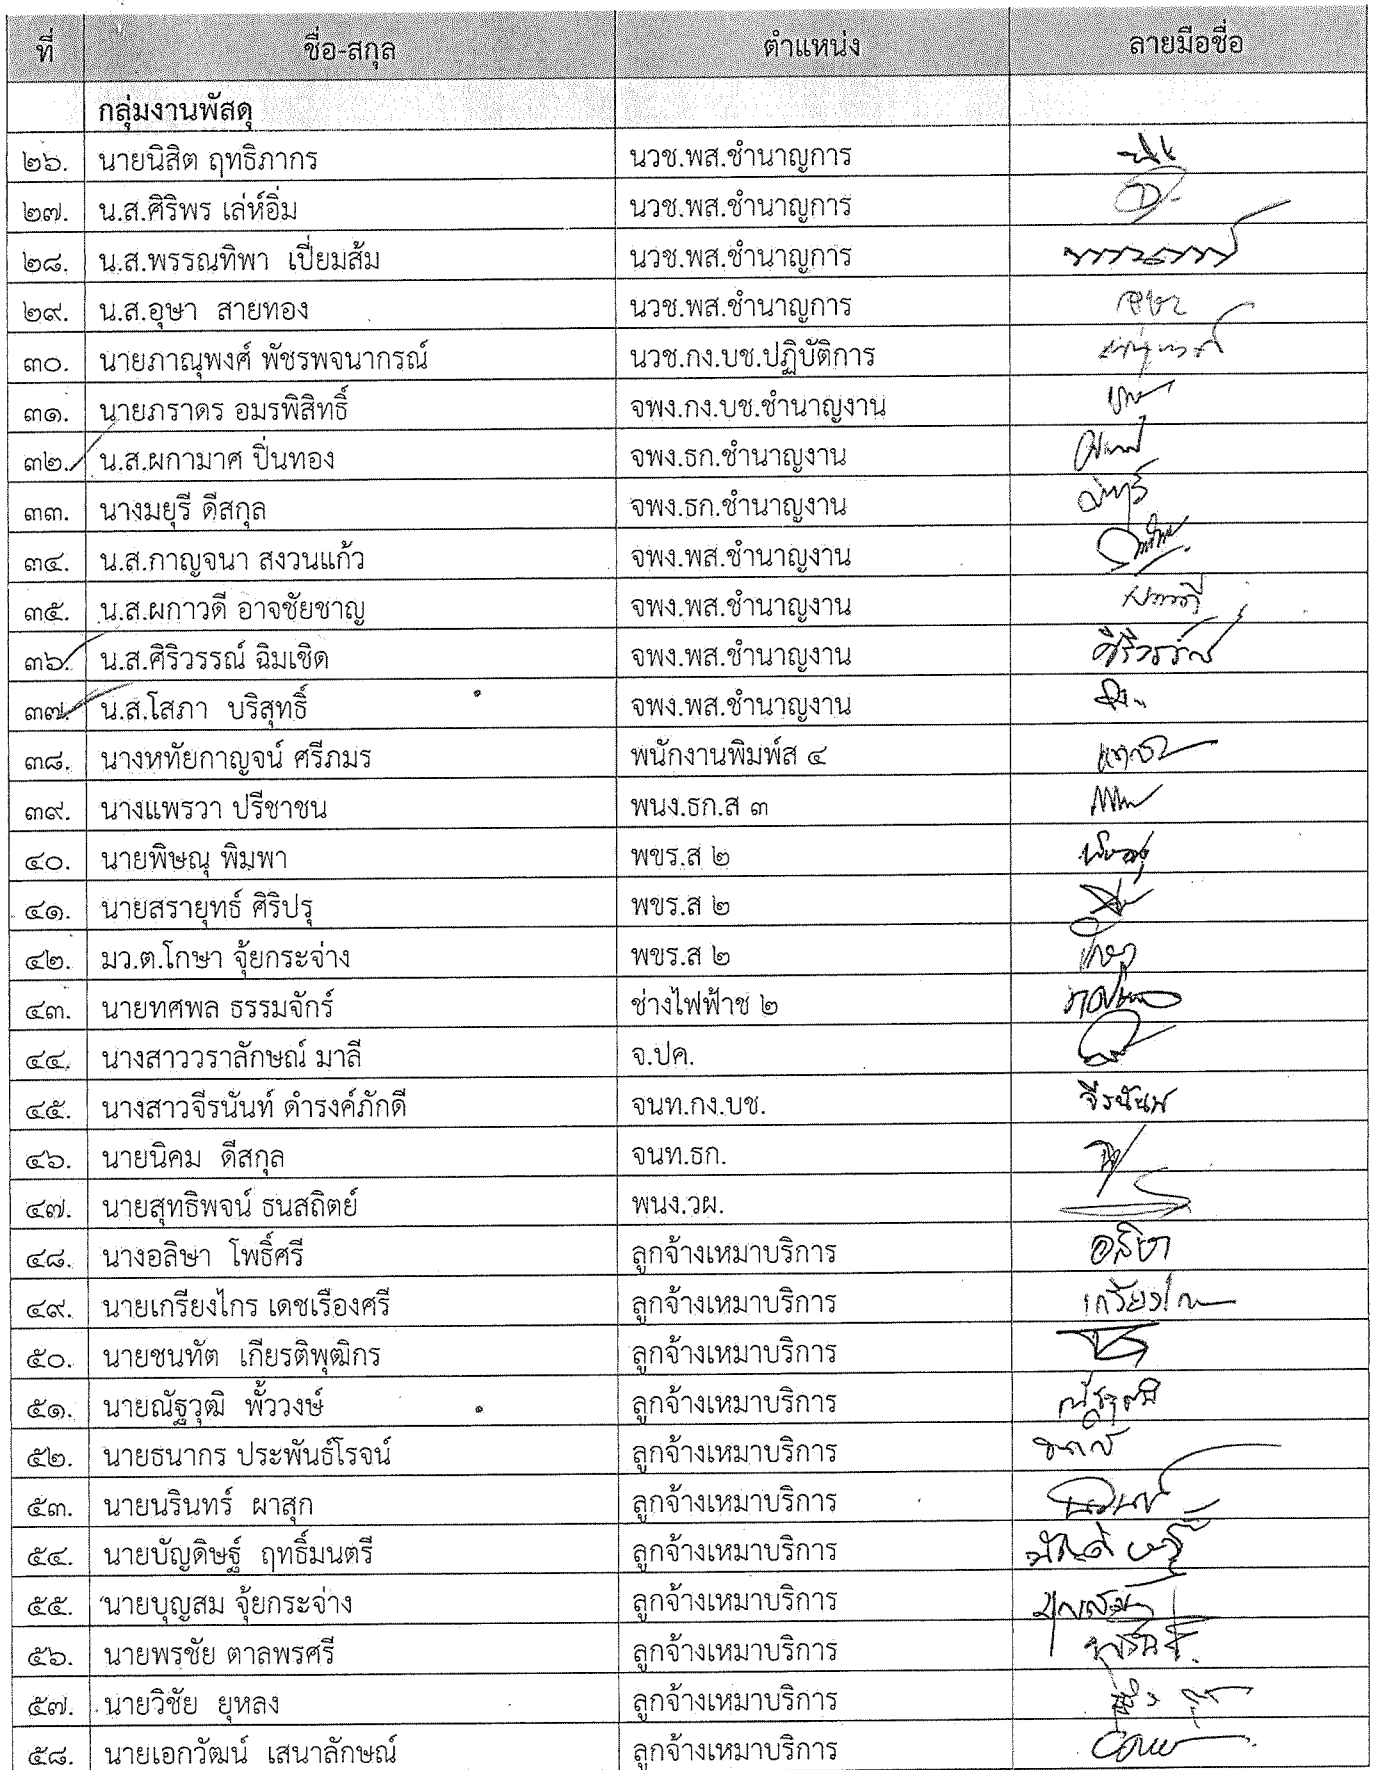 ที่ ชื่อ-สกุล ตำแหน่ง ลายมือชื่อ
กลุ่มงานพัสดุ
๒๖. นายนิสิต ฤทธิภากร นวช.พส.ชำนาญการ
๒๗. น.ส.ศิริพร เล่ห์อิ่ม นวช.พส.ชำนาญการ
๒๘. น.ส.พรรณทิพา เปี่ยมส้ม นวช.พส.ชำนาญการ
๒๙. น.ส.อุษา สายทอง นวช.พส.ชำนาญการ อุษา
๓๐. นายภาณุพงศ์ พัชรพจนากรณ์ นวช.กง.บช.ปฏิบัติการ
๓๑. นายภราดร อมรพิสิทธิ์ จพง.กง.บช.ชำนาญงาน
๓๒. น.ส.ผกามาศ ปิ่นทอง จพง.ธก.ชำนาญงาน
๓๓. นางมยุรี ดีสกุล จพง.ธก.ชำนาญงาน
๓๔. น.ส.กาญจนา สงวนแก้ว จพง.พส.ชำนาญงาน
๓๕. น.ส.ผกาวดี อาจชัยชาญ จพง.พส.ชำนาญงาน ผกาวดี
๓๖. น.ส.ศิริวรรณ์ ฉิมเชิด จพง.พส.ชำนาญงาน ศิริวรรณ์
๓๗. น.ส.โสภา บริสุทธิ์ จพง.พส.ชำนาญงาน
๓๘. นางหทัยกาญจน์ ศรีภมร พนักงานพิมพ์ส ๔
๓๙. นางแพรวา ปรีชาชน พนง.ธก.ส ๓
๔๐. นายพิษณุ พิมพา พขร.ส ๒ พิษณุ
๔๑. นายสรายุทธ์ ศิริปรุ พขร.ส ๒
๔๒. มว.ต.โกษา จุ้ยกระจ่าง พขร.ส ๒ โกษา
๔๓. นายทศพล ธรรมจักร์ ช่างไฟฟ้าช ๒
๔๔. นางสาววราลักษณ์ มาลี จ.ปค.
๔๕. นางสาวจีรนันท์ ดำรงค์ภักดี จนท.กง.บช. จีรนันท์
๔๖. นายนิคม ดีสกุล จนท.ธก.
๔๗. นายสุทธิพจน์ ธนสถิตย์ พนง.วผ.
๔๘. นางอลิษา โพธิ์ศรี ลูกจ้างเหมาบริการ อลิษา
๔๙. นายเกรียงไกร เดชเรืองศรี ลูกจ้างเหมาบริการ เกรียงไกร
๕๐. นายชนทัต เกียรติพุฒิกร ลูกจ้างเหมาบริการ
๕๑. นายณัฐวุฒิ พั้ววงษ์ ลูกจ้างเหมาบริการ ณัฐวุฒิ
๕๒. นายธนากร ประพันธ์โรจน์ ลูกจ้างเหมาบริการ
๕๓. นายนรินทร์ ผาสุก ลูกจ้างเหมาบริการ
๕๔. นายบัญดิษฐ์ ฤทธิ์มนตรี ลูกจ้างเหมาบริการ
๕๕. นายบุญสม จุ้ยกระจ่าง ลูกจ้างเหมาบริการ บุญสม
๕๖. นายพรชัย ตาลพรศรี ลูกจ้างเหมาบริการ
๕๗. นายวิชัย ยุหลง ลูกจ้างเหมาบริการ
๕๘. นายเอกวัฒน์ เสนาลักษณ์ ลูกจ้างเหมาบริการ